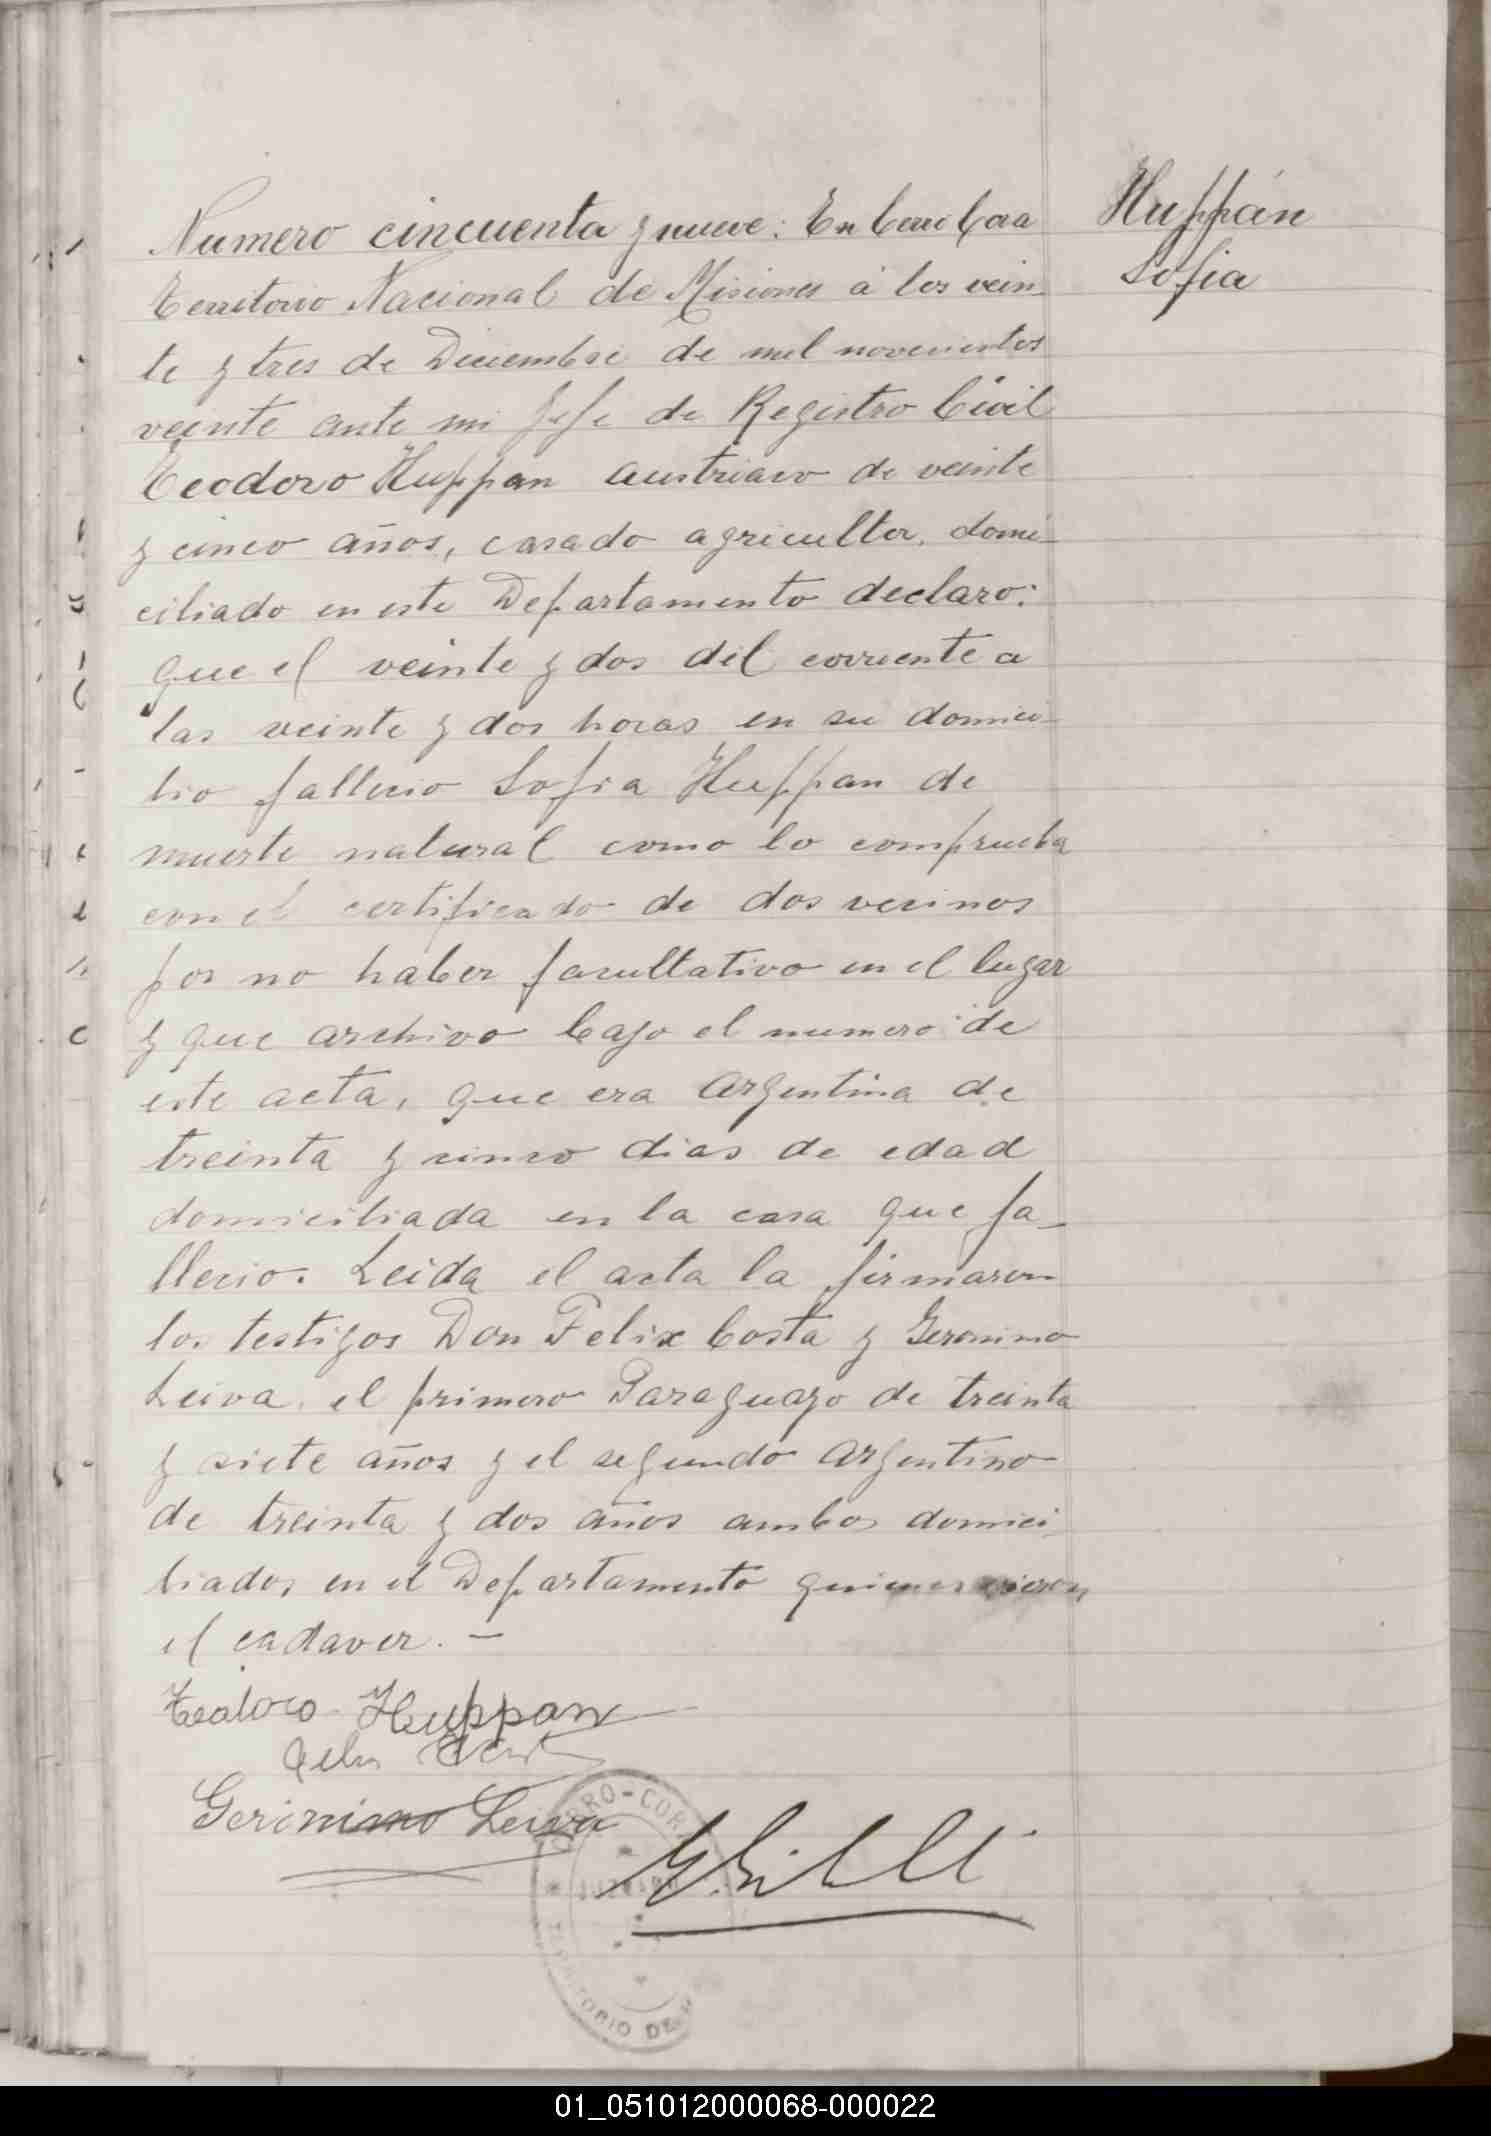 Huppán
Sofia
Numero cincuenta y nueve: En Cerro Cora
Territorio Nacional de Misiones á los vein
te y tres de Diciembre de mil novecientos
veinte ante mi Jefe de Registro Civil
Teodoro Huppan austriaco de veinte
y cinco años, casado agricultor, domi
ciliado en este Departamento declaro:
que el veinte y dos del corriente a
las veinte y dos horas en su domici
lio fallecio Sofia Huppan de
muerte natural como lo comprueba
con el certificado de dos vecinos
por no haber facultativo en el lugar
y que archivo bajo el numero de
este acta, que era argentina de
treinta y cinco dias de edad
domiciliada en la casa que fa_
llecio. Leida el acta la firmaron
los testigos Don Felix Costa y Geronimo
Leiva, el primero Paraguayo de treinta
y siete años y el segundo argentino
de treinta y dos años ambos domici
liados en el Departamento quienes vieron
el cadaver. —
Teodoro Huppan
Gerinimo Leiva
CERRO-CORA
TERRITORIO DE
01_051012000068-000022